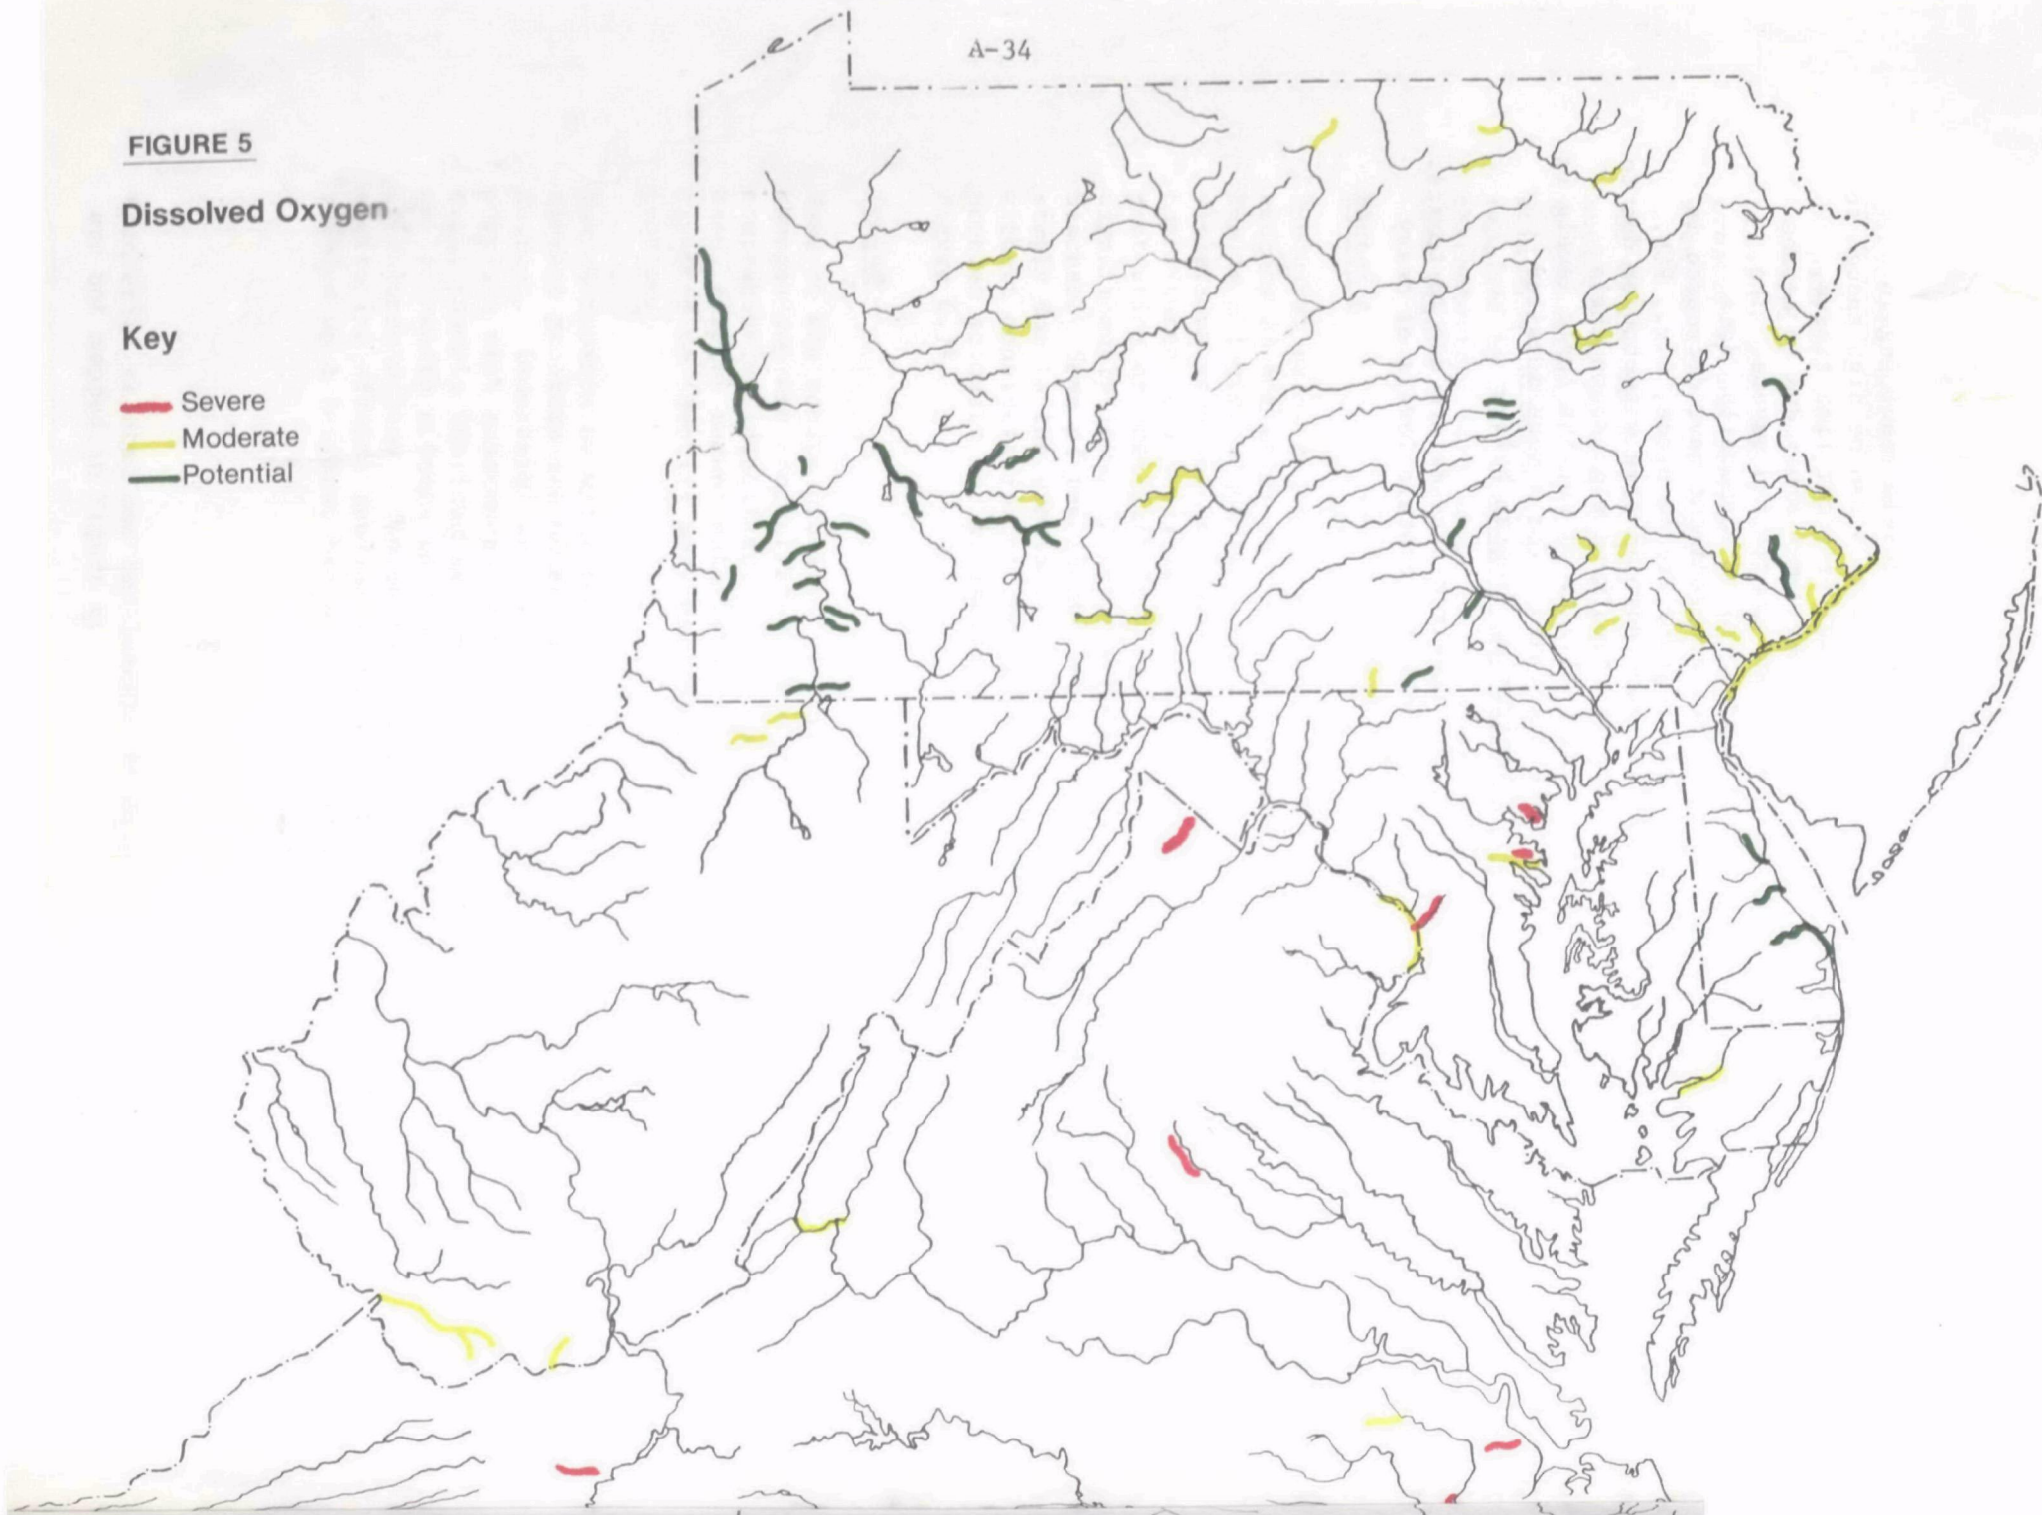 A-34
FIGURE 5
Dissolved Oxygen
Key
Severe
Moderate
Potential